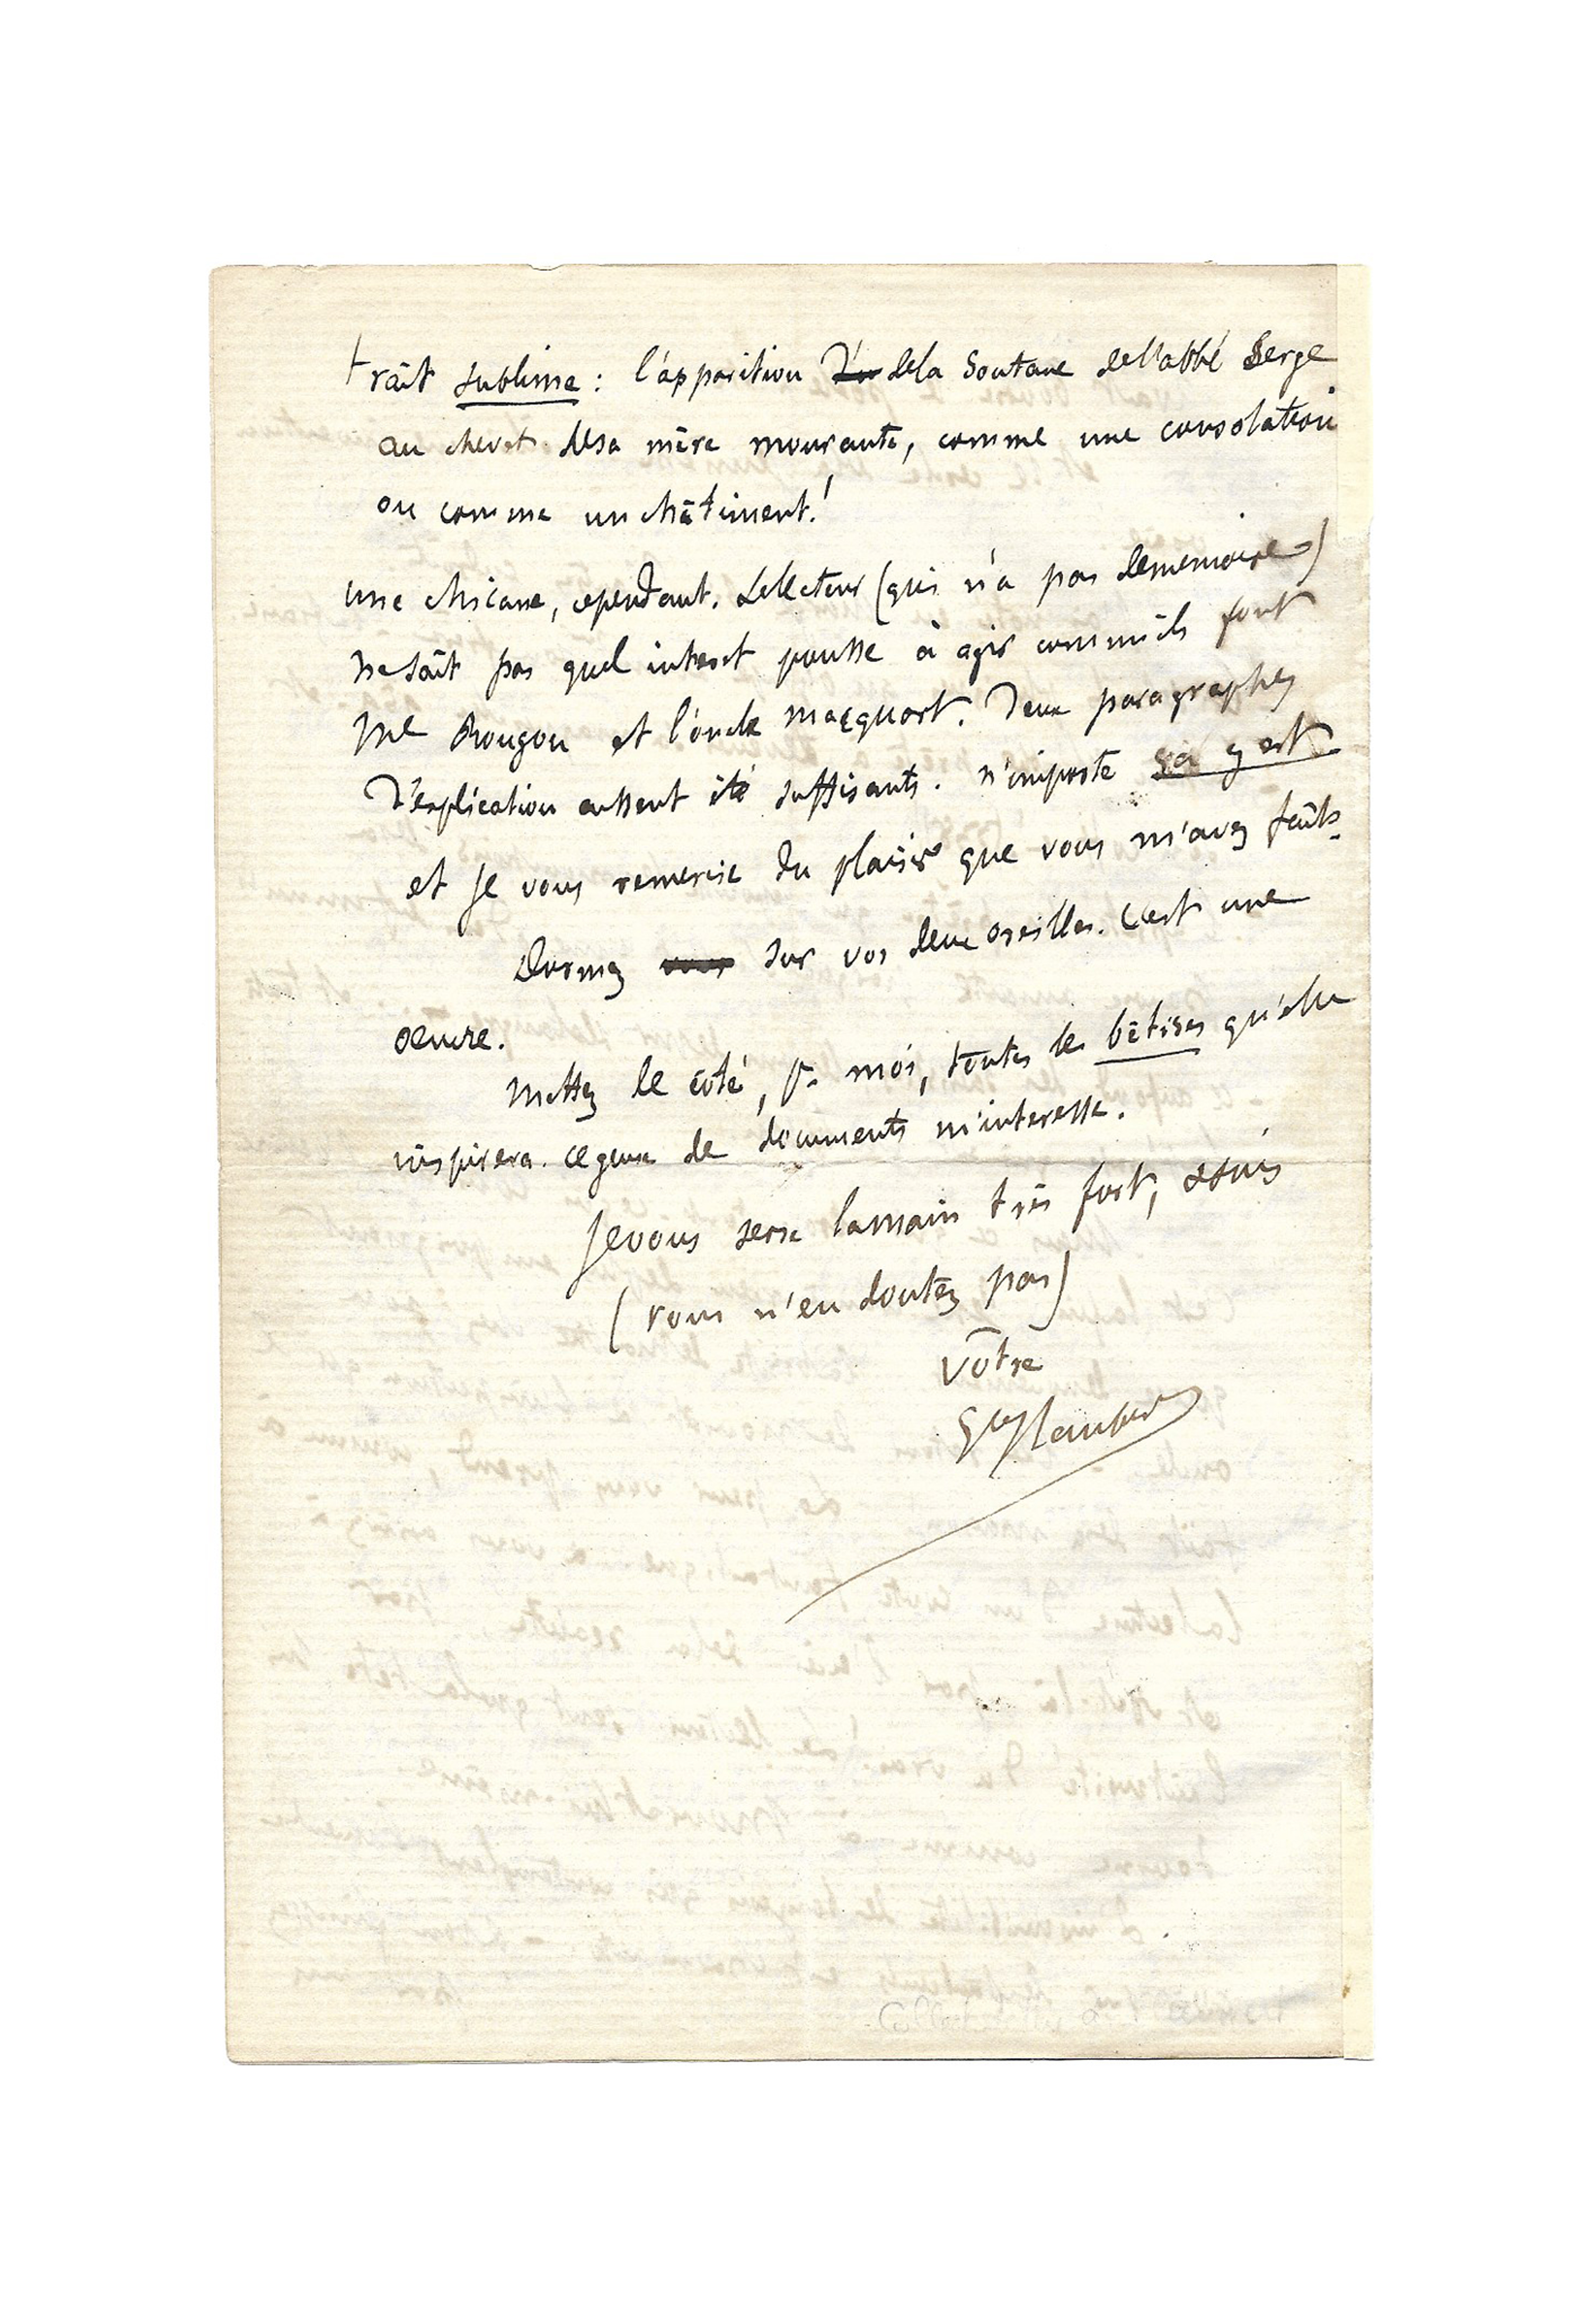 trait sublime : l'apparition d'un dela soutane del'abbé Serge
au chevet desa mère mourante, comme une consolation
ou comme un châtiment!
une chicane, cependant. Lelecteur (qui n'a pas dememoire)
ne sait pas quel interet pousse à agir comme ils font
Me Rougon et l'oncle macquart. Deux paragraphes
d'explication eussent été suffisants. n'importe ça y est
et je vous remercie du plaisir que vous m'avez fait.
Dormez vous sur vos deux oreilles. c'est une
oeuvre.
Mettez de coté, pr moi, toutes les bêtises qu'elle
inspirera. ce genre de documents m'interesse.
Jevous serre lamain très fort, & suis
(vous n'en doutez pas)
vôtre
Gve Flaubert